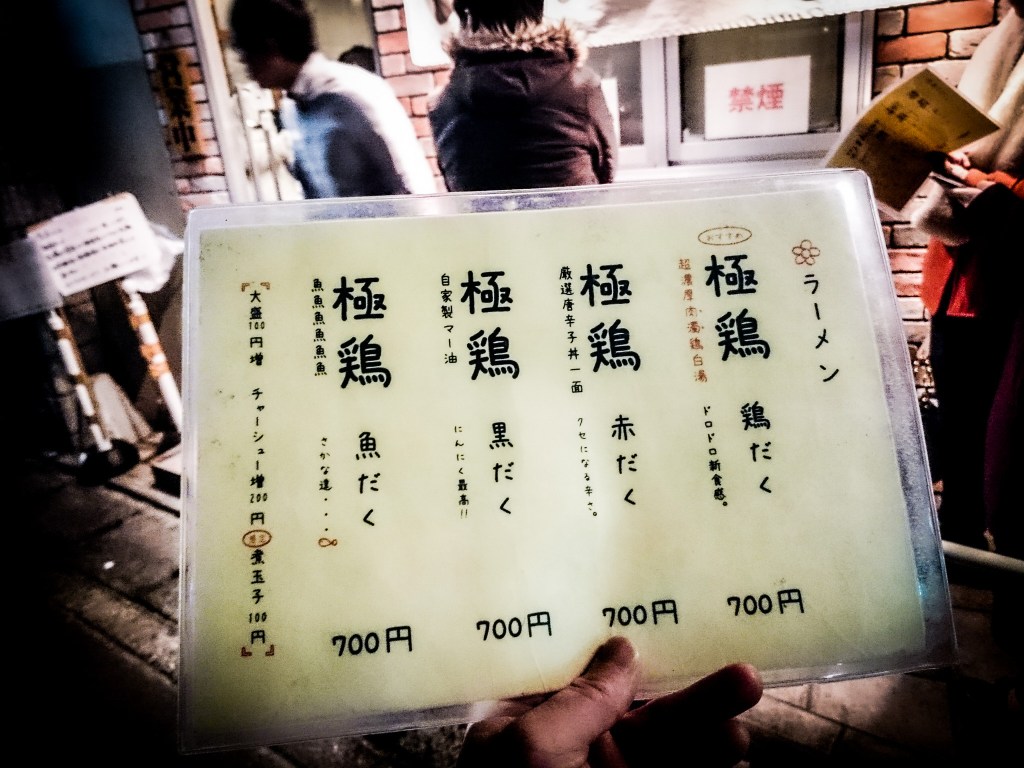 ラーメン
おすすめ
極鶏 鶏だく 700円
超濃厚肉濁鶏白湯
ドロドロ新食感。
極鶏 赤だく 700円
厳選唐辛子丼一面
クセになる辛さ。
極鶏 黒だく 700円
自家製マー油
にんにく最高!!
極鶏 魚だく 700円
魚魚魚魚魚魚
さかな達・・・
大盛100円増 チャーシュー増200円 煮玉子100円
禁煙
営業中